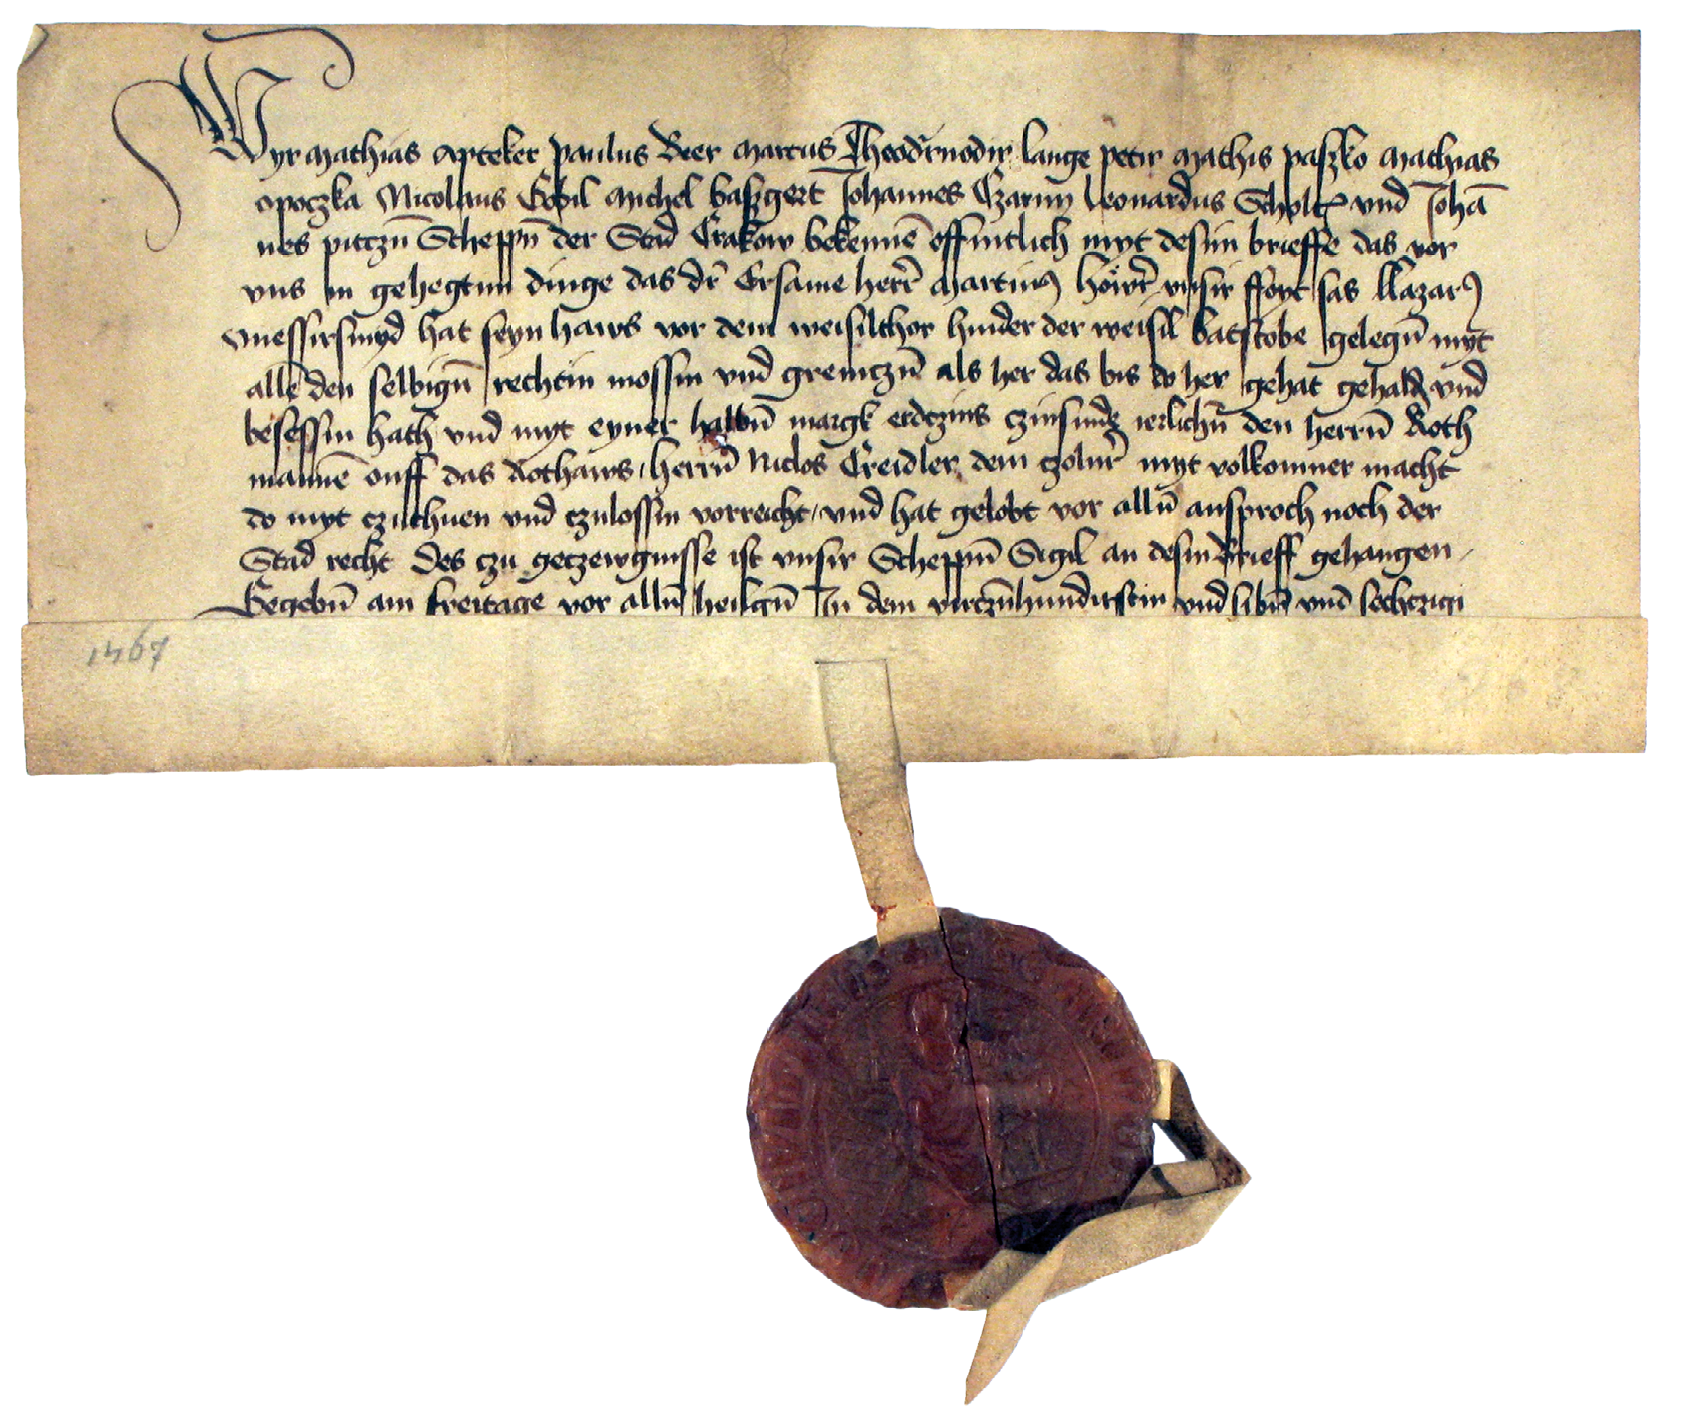 Wyr Mathias Apteker Paulus Beer Marcus Theodrnodir lange Petir Mathis Paszko Mathias
Opoczka Nicolaus Gobil Michel Baszgert Johannes Czarny Leonardus Scholtz vnd Johā
nes pitczn̄ Scheppn̄ der Stad Crakow bekennē offintlich myt desim brieffe das vor
vns in gehegtim dinge das dr̄ Ersame herr̄ Martin9 vnsir ffoyt sas Lazar9
Messirsmyd hat seyn haws vor dem weisilthor hinder der weisil batstobe gelegn̄ myt
allē den selbign̄ rechtin mossin vnd grenitczn̄ als her das bis do her gehat gehaldn̄ vnd
besessin hath vnd myt eyner halbn̄ margk erdczins czinsinde ierlichn̄ den herrn̄ Roth
mannē ouff das Rothaws herrn̄ Niclos Creidler dem czolnr̄ myt volkomner macht
do myt czuthuen vnd czulossin vorreicht / vnd hat gelobt vor alln̄ ansproch noch der
Stad recht Des czu geczewgnisse ist vnsir Scheppn̄ Sigil an desin brieff gehangen
Gegebn̄ am freitage vor alln̄ heilgn̄ In dem virczn̄hundirstin vnd sibn̄ vnd sechczigi
1467